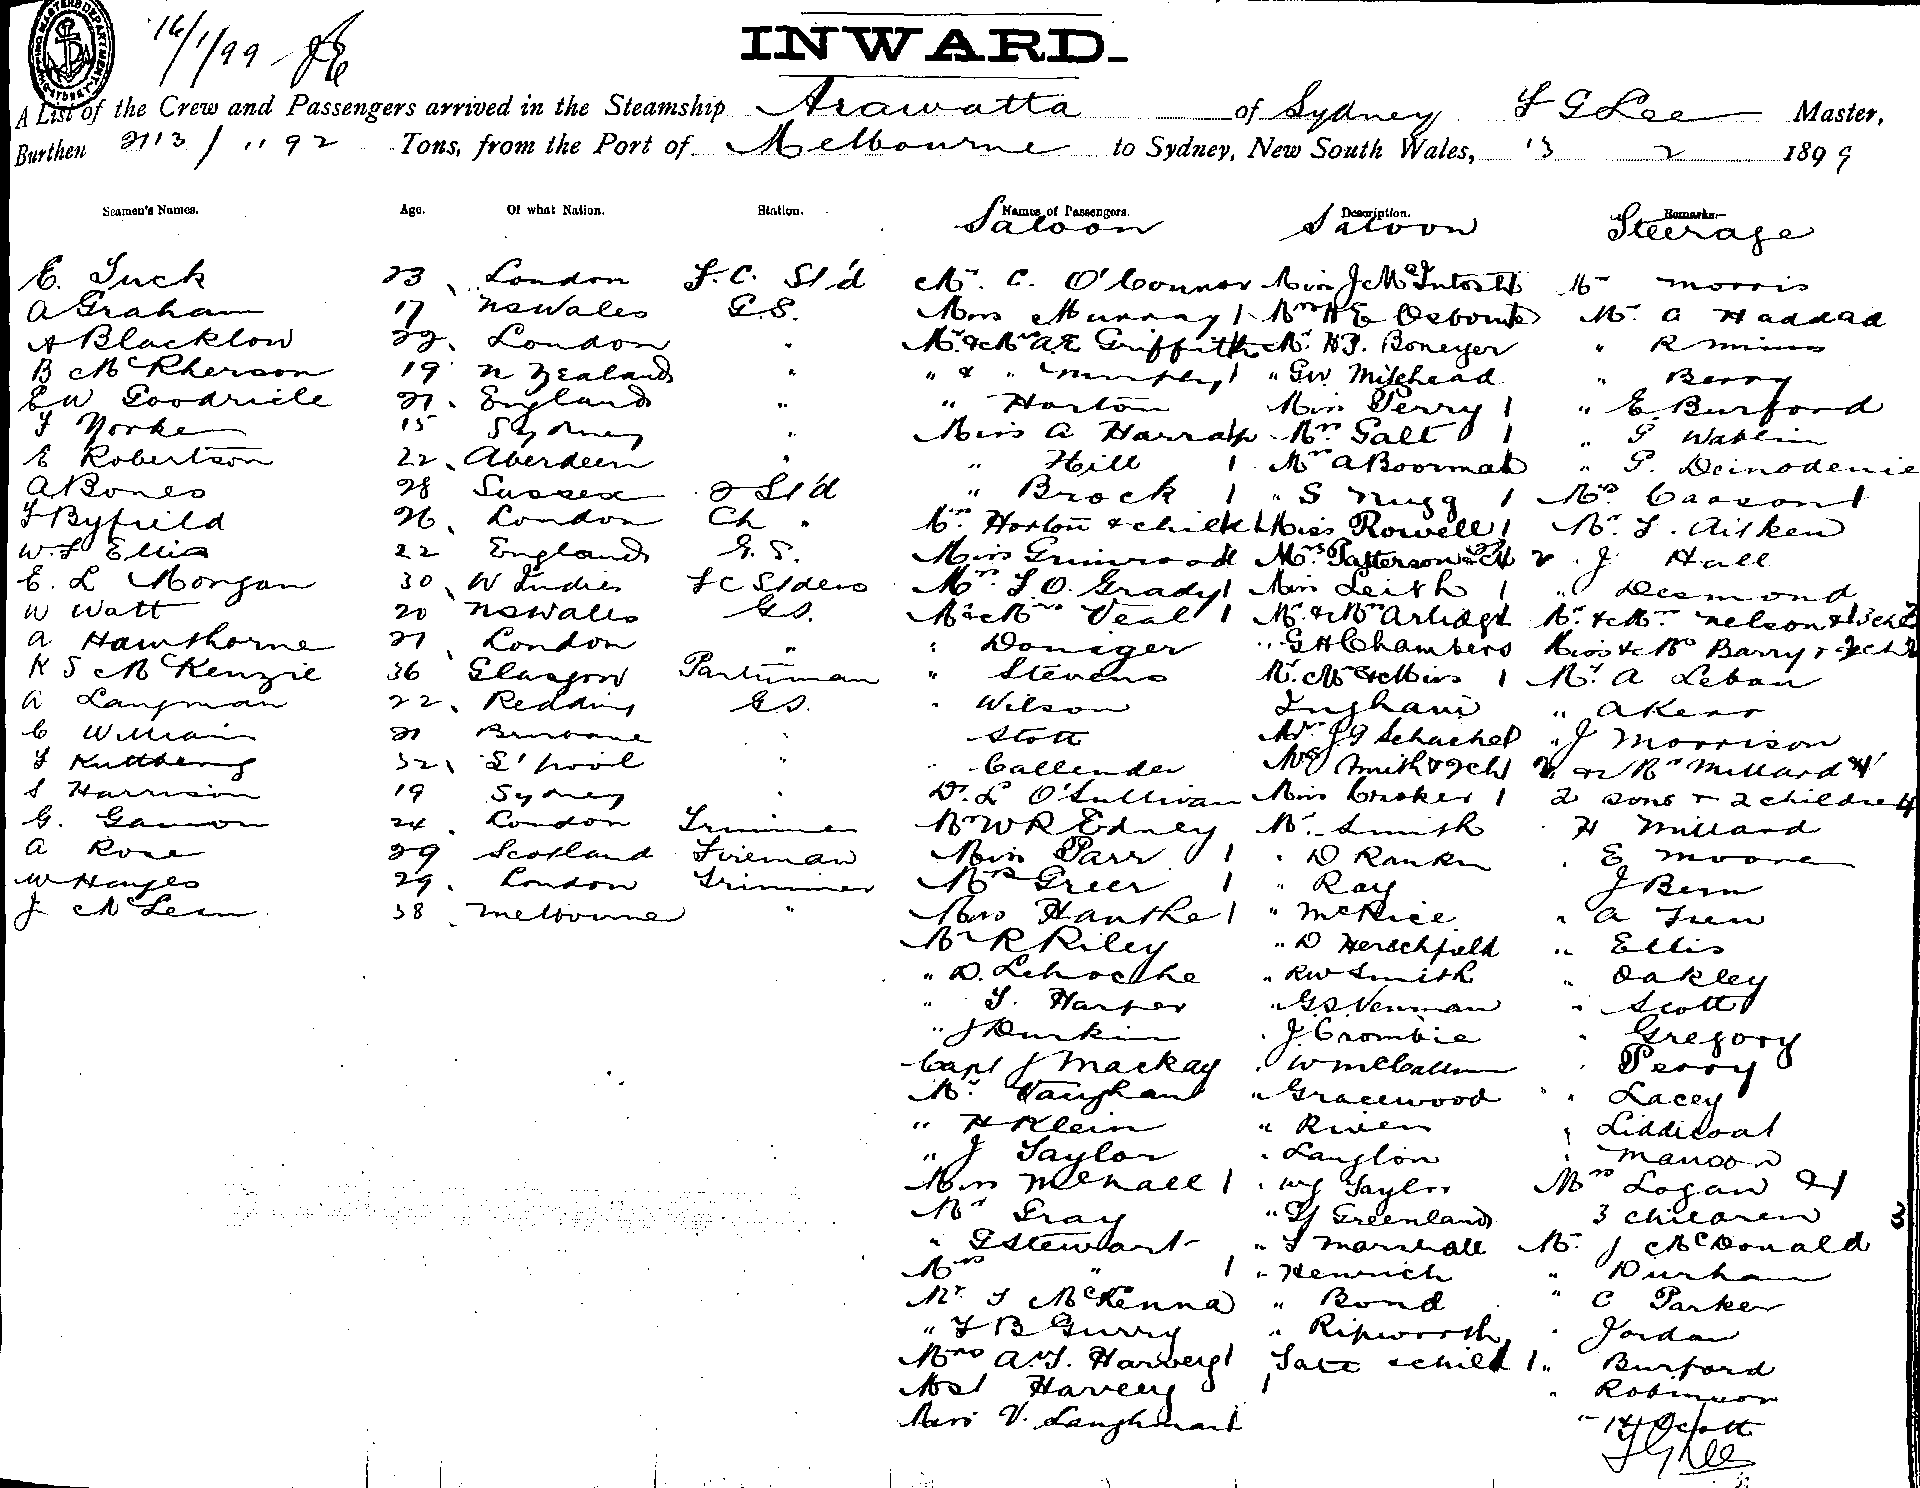 16/1/99
INWARD.
A List of the Crew and Passengers arrived in the Steamship Arawatta of Sydney F G Lee Master,
Burthen 2113 / 1192 Tons, from the Port of Melbourne to Sydney, New South Wales, 13 2 1899
Seamen's Names. Age. Of what Nation. Station. Names of Passengers. Description. Remarks.
Saloon Saloon Steerage
E. Tuck 23 London F.C. St'd Mr. C. O'Connor Miss J McIntosh Mr Morris
A Graham 17 N S Wales G.S. Miss Murray 1 Mrs H E Osborne Mr. A Haddad
A Blacklow 22. London " Mr. & Mrs A.E Griffith Mr. H.J. Boneyer " R Mimms
B McPherson 19 N Zealand " " & " Murphy 1 " GW Milehead " Berry
E W Goodricke 21. England " " Horton Miss Perry 1 " E. Burford
F Yorke 15 Sydney " Miss A Harrap Mrs Galt 1 " G
E Robertson 22. Aberdeen " " Hill 1 Mrs A Boorman " G.
A Bones 28 Sussex 2 St'd " Brock 1 " S Nugg 1 Mrs Carson 1
F Byfield 26. London Ch " Mrs Horton & child 1 Miss Rowell 1 Mr. F. Aitken
W. F Ellis 22 England G.S. Miss Grimwood Mrs Patterson & Ch 2 " J Hall
E. L Morgan 30 W Indies F C St'dess Mrs F. O. Grady 1 Miss Leith 1 " Desmond
W Watt 20 N S Wales G.S. Mr & Mrs Veal 1 Mr. & Mrs Mr. & Mrs Nelson & 3 ch
A Hawthorne 21 London " " Doniger " G H Chambers Miss & Mrs Barry & 2 ch
K S McKenzie 36 Glasgow Pantryman " Stevens Mr. Mrs & Miss 1 Mr. A Leban
A Langman 22. Redding G.S. " Wilson Ingham " A Kerr
C William 21 Brisbane " Stott Mr. J G Schachel " J Morrison
F 32 L'pool " " Callender Mrs Smith & 2 ch Mr & Mrs Millard 4
S Harrison 19 Sydney " Dr. L O'Sullivan Miss Croker 1 2 sons & 2 children 4
G. Gannon 24. London Trimmer Mr W R Edney Mr. Smith " H Millard
A Rose 29 Scotland Fireman Miss Parr 1 " D Rankin " E Moore
W Hayes 29. London Trimmer Mrs Greer 1 " Ray J Bern
J McLean 38 Melbourne " Miss Hanthe 1 " McRice " A
Mr R Riley " D Herschfeld " Ellis
" D. " R W Smith " Oakley
" F. Harper " G S Venman " Scott
" J Durkin " J. Crombie " Gregory
Capt J Mackay " W McCallum " Perry
Mr. Vaughan " Gracewood " Lacey
" H Klein " Riven " Liddicoat
" J Taylor " Langlon " Manson
Miss McNall 1 " W J Taylor Mrs Logan &
Mr Gray " Greenland 3 children 3
" G Stewart " F Marshall Mr. J McDonald
Mrs " 1 " Henrich " Durham
Mr. F McKenna " Bond " C Parker
" F B Gurry " Ripworth " Jordan
Mrs A. F. Harvey 1 Tate & child 1 " Burford
Mast Harvey 1 " Robinson
Miss V. Langhman 1 " H Scott
F G Lee